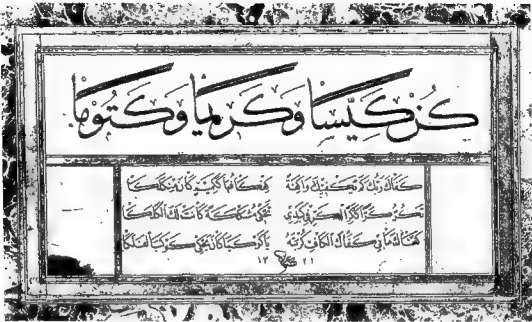 كُنْ كَيِّسًا وَكَرِيمًا وَكَتُومًا
كفاك ربك كم يكفيك واكفة كفكافها ككمين كان من كلكا
تكر كرا ككر الكر في كبدي تحكي مشكشكة
كفاك ما بي كفاك الكاف كربته يا كوكبا كان يحكي كوكب الفلكا
١٣ ٢١